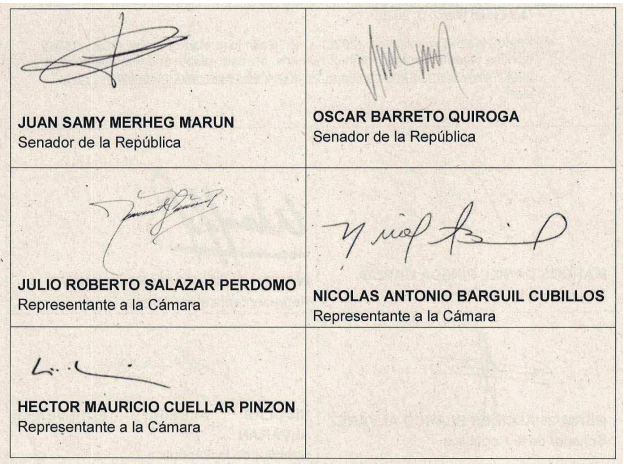 JUAN SAMY MERHEG MARUN
Senador de la República
OSCAR BARRETO QUIROGA
Senador de la República
JULIO ROBERTO SALAZAR PERDOMO
Representante a la Cámara
NICOLAS ANTONIO BARGUIL CUBILLOS
Representante a la Cámara
HECTOR MAURICIO CUELLAR PINZON
Representante a la Cámara